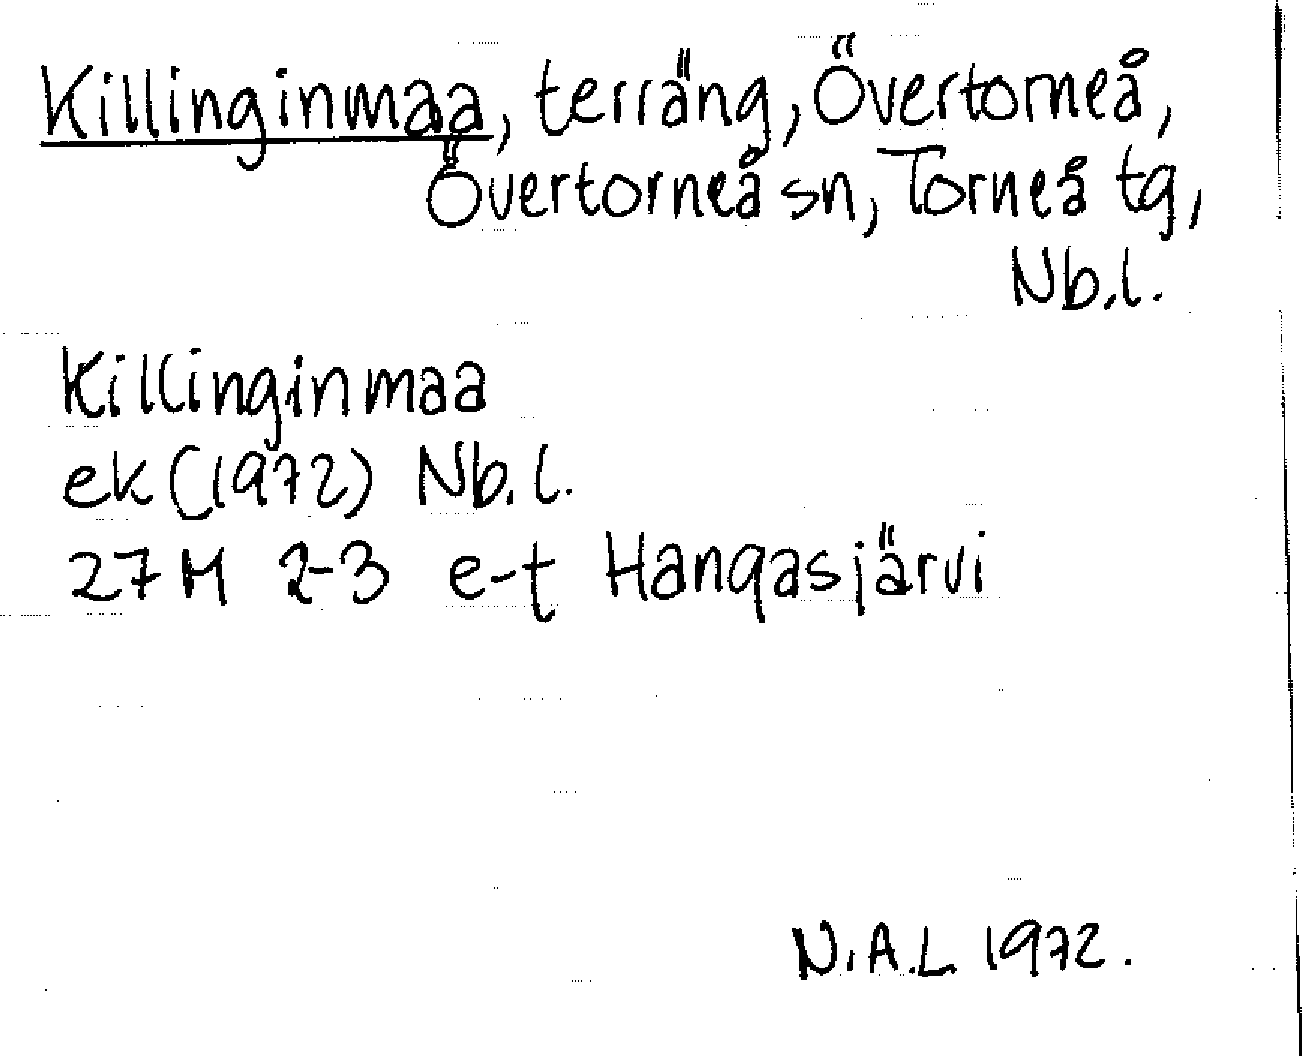 Killinginmaa, terräng, Övertorneå,
Övertorneå sn, Torneå tg,
Nb.l.
Killinginmaa
ek (1972) Nb.l.
27M 2-3 e-t Hangasjärvi
N.A.L 1972.